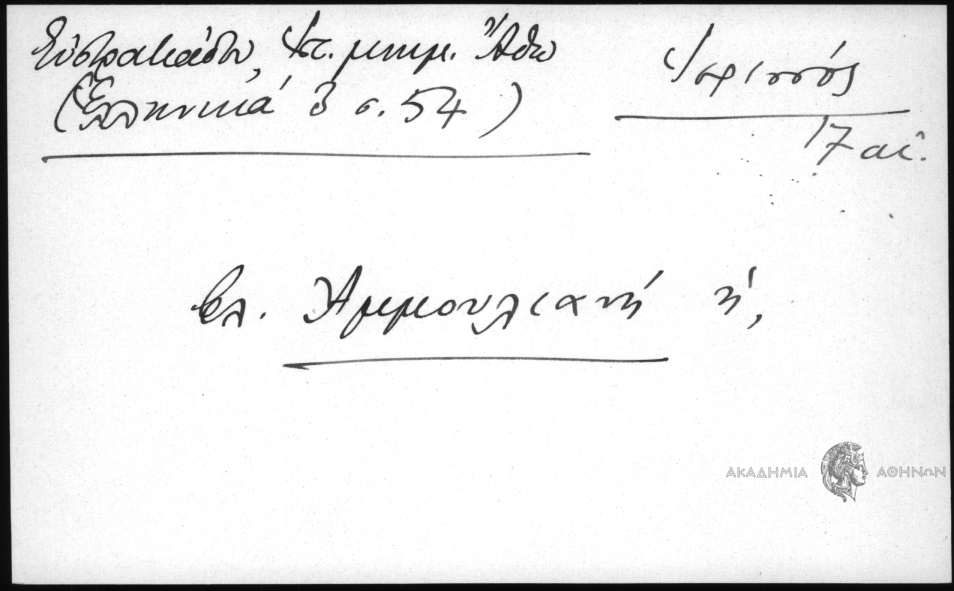 Εὐστρατιάδου, Ἱστ. μνημ. Ἄθω
(Ἑλληνικά 3 σ. 54)
Ἱερισσός
17 αἰ.
βλ. Ἀμμουλιανή ἡ,
ΑΚΑΔΗΜΙΑ ΑΘΗΝΩΝ